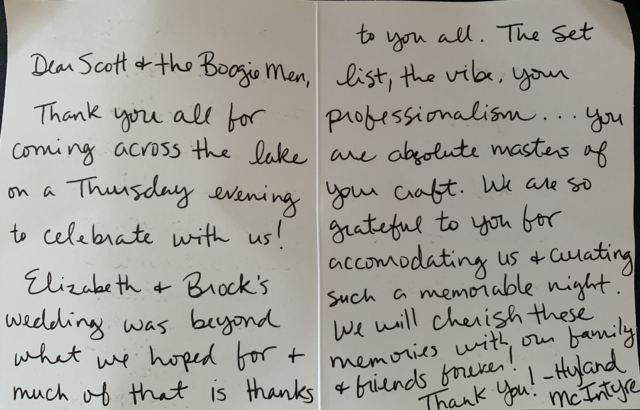 Dear Scott & the Boogie Men,
Thank you all for
coming across the lake
on a Thursday evening
to celebrate with us!
Elizabeth & Brock's
wedding was beyond
what we hoped for &
much of that is thanks
to you all. The set
list, the vibe, your
professionalism... you
are absolute masters of
your craft. We are so
grateful to you for
accomodating us & curating
such a memorable night.
We will cherish these
memories with our family
& friends forever!
Thank You! -Hyland
McIntyre